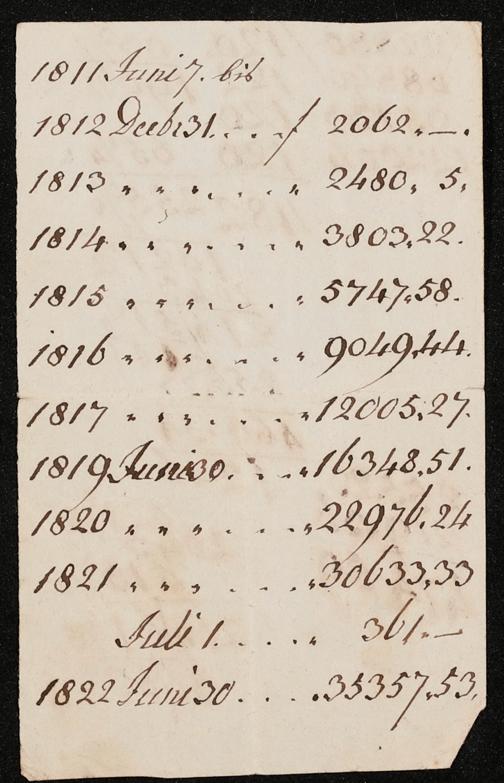 1811 Juni 7. bis
1812 Decbr 31. . . f 2062. —.
1813 " " " . . " 2480. 5.
1814 " " " . . " 3803. 22.
1815 " " " . . " 5747. 58.
1816 " " " . . " 9049. 44.
1817 " " " . . " 12005. 27.
1819 Juni 30. . . " 16348. 51.
1820 " " " . . " 22976. 24
1821 " " " . . " 30633. 33
Juli 1. . . . " 361. —
1822 Juni 30 . . . . 35357. 53.